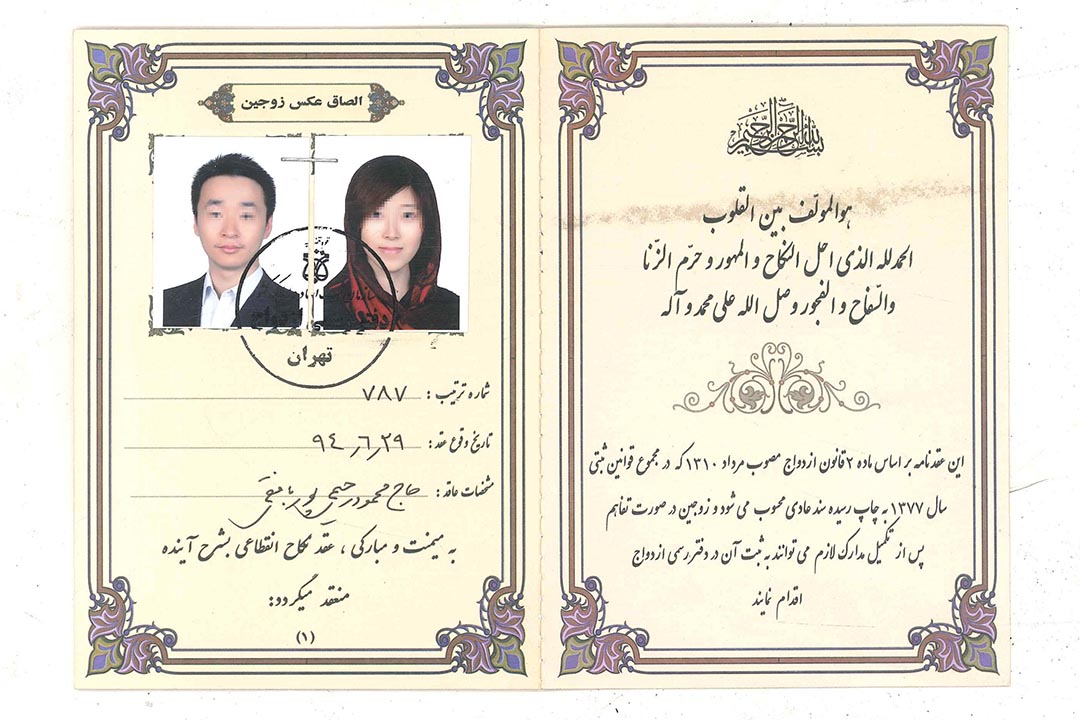 بسم الله الرحمن الرحیم
هوالمولّف بین القلوب
الحمدلله الذی احل النکاح و المهور و حرّم الزّنا
والسّفاح و الفجور وصل الله علی محمد و آله
این عقدنامه بر اساس ماده ۲ قانون ازدواج مصوب مرداد ۱۳۱۰ که در مجموع قوانین ثبتی
سال ۱۳۷۷ به چاپ رسیده سند عادی محسوب می شود و زوجین در صورت تفاهم
پس از تکمیل مدارک لازم می توانند به ثبت آن در دفتر رسمی ازدواج
اقدام نمایند
الصاق عکس زوجین
تهران
شماره ترتیب : ۷۸۷
تاریخ وقوع عقد : ۹٤٫٦٫۲۹
مشخصات عاقد : حاج محمود رحیمی پور
به میمنت و مبارکی ، عقد نکاح انقطاعی بشرح آینده
منعقد میگردد:
(۱)